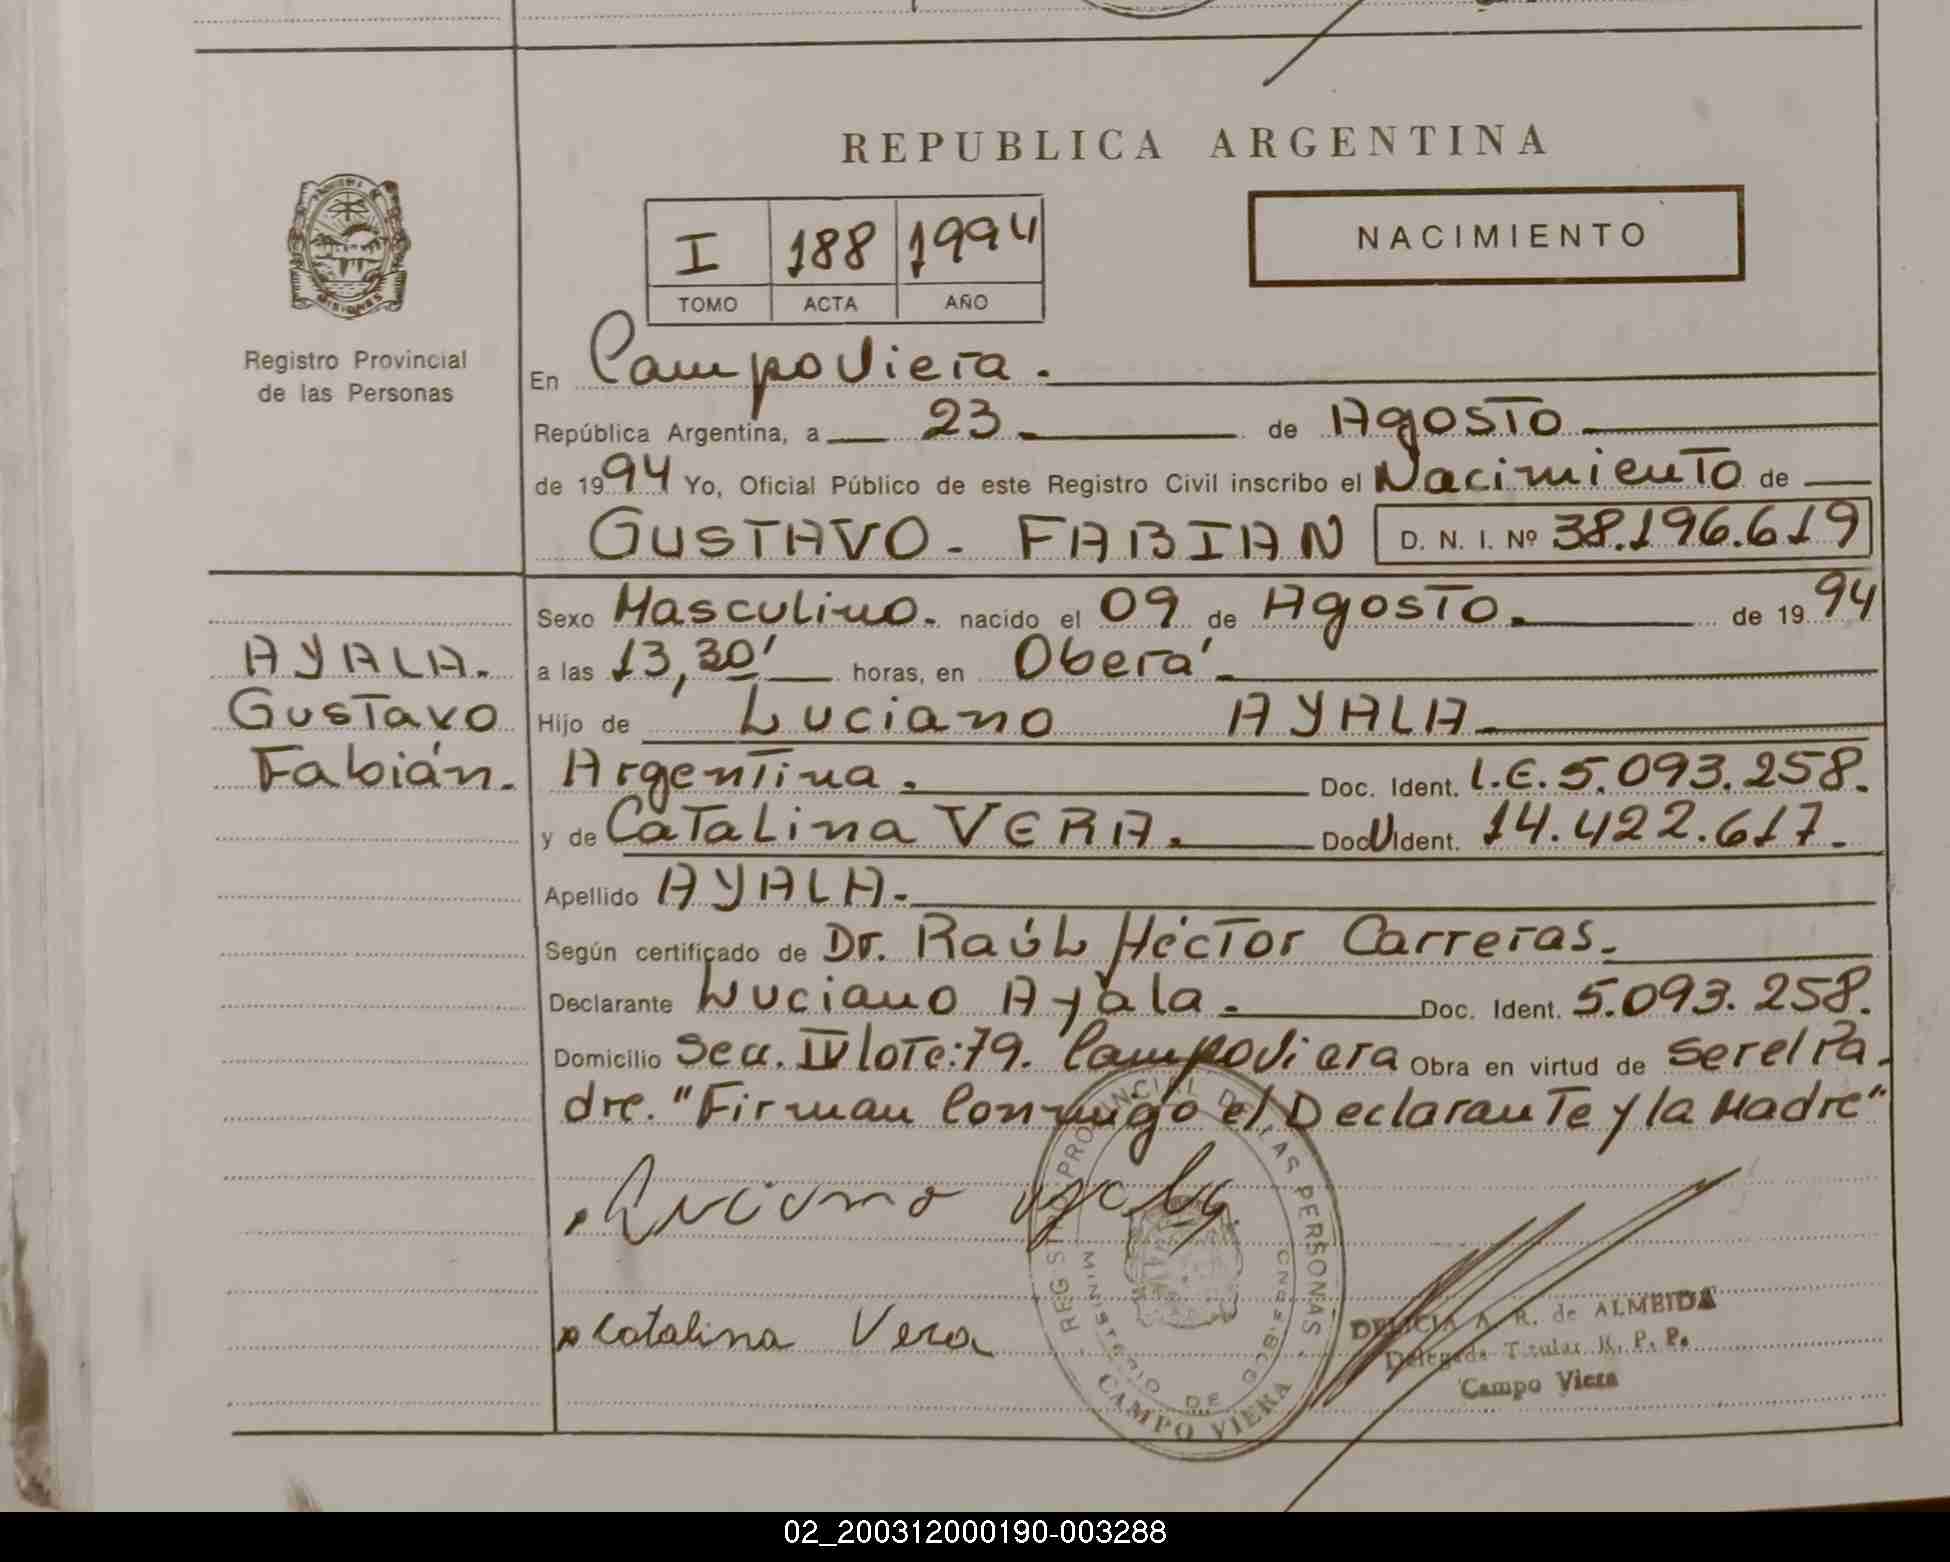 REPUBLICA ARGENTINA
I 188 1994
TOMO ACTA AÑO
NACIMIENTO
MISIONES
Registro Provincial
de las Personas
En Campo Viera.
República Argentina, a 23 de Agosto
de 1994 Yo, Oficial Público de este Registro Civil inscribo el Nacimiento de
GUSTAVO - FABIAN D. N. I. Nº 38.196.619
AYALA.
Gustavo
Fabián.
Sexo Masculino. nacido el 09 de Agosto. de 1994
a las 13,30' horas, en Oberá.
Hijo de Luciano AYALA
Argentina. Doc. Ident. L.E. 5.093.258.
y de Catalina VERA. Doc U Ident. 14.422.617.
Apellido AYALA.
Según certificado de Dr. Raúl Héctor Carreras.
Declarante Luciano Ayala. Doc. Ident. 5.093.258.
Domicilio Secc. IV lote:79. Campo Viera Obra en virtud de ser el Pa-
dre. "Firman Conmigo el Declarante y la Madre"
Luciano Ayala
Catalina Vera
REGISTRO PROVINCIAL DE LAS PERSONAS
MINISTERIO DE GOBIERNO
CAMPO VIERA
DELICIA A. R. de ALMEIDA
Delegada Titular R. P. P.
Campo Viera
02_200312000190-003288